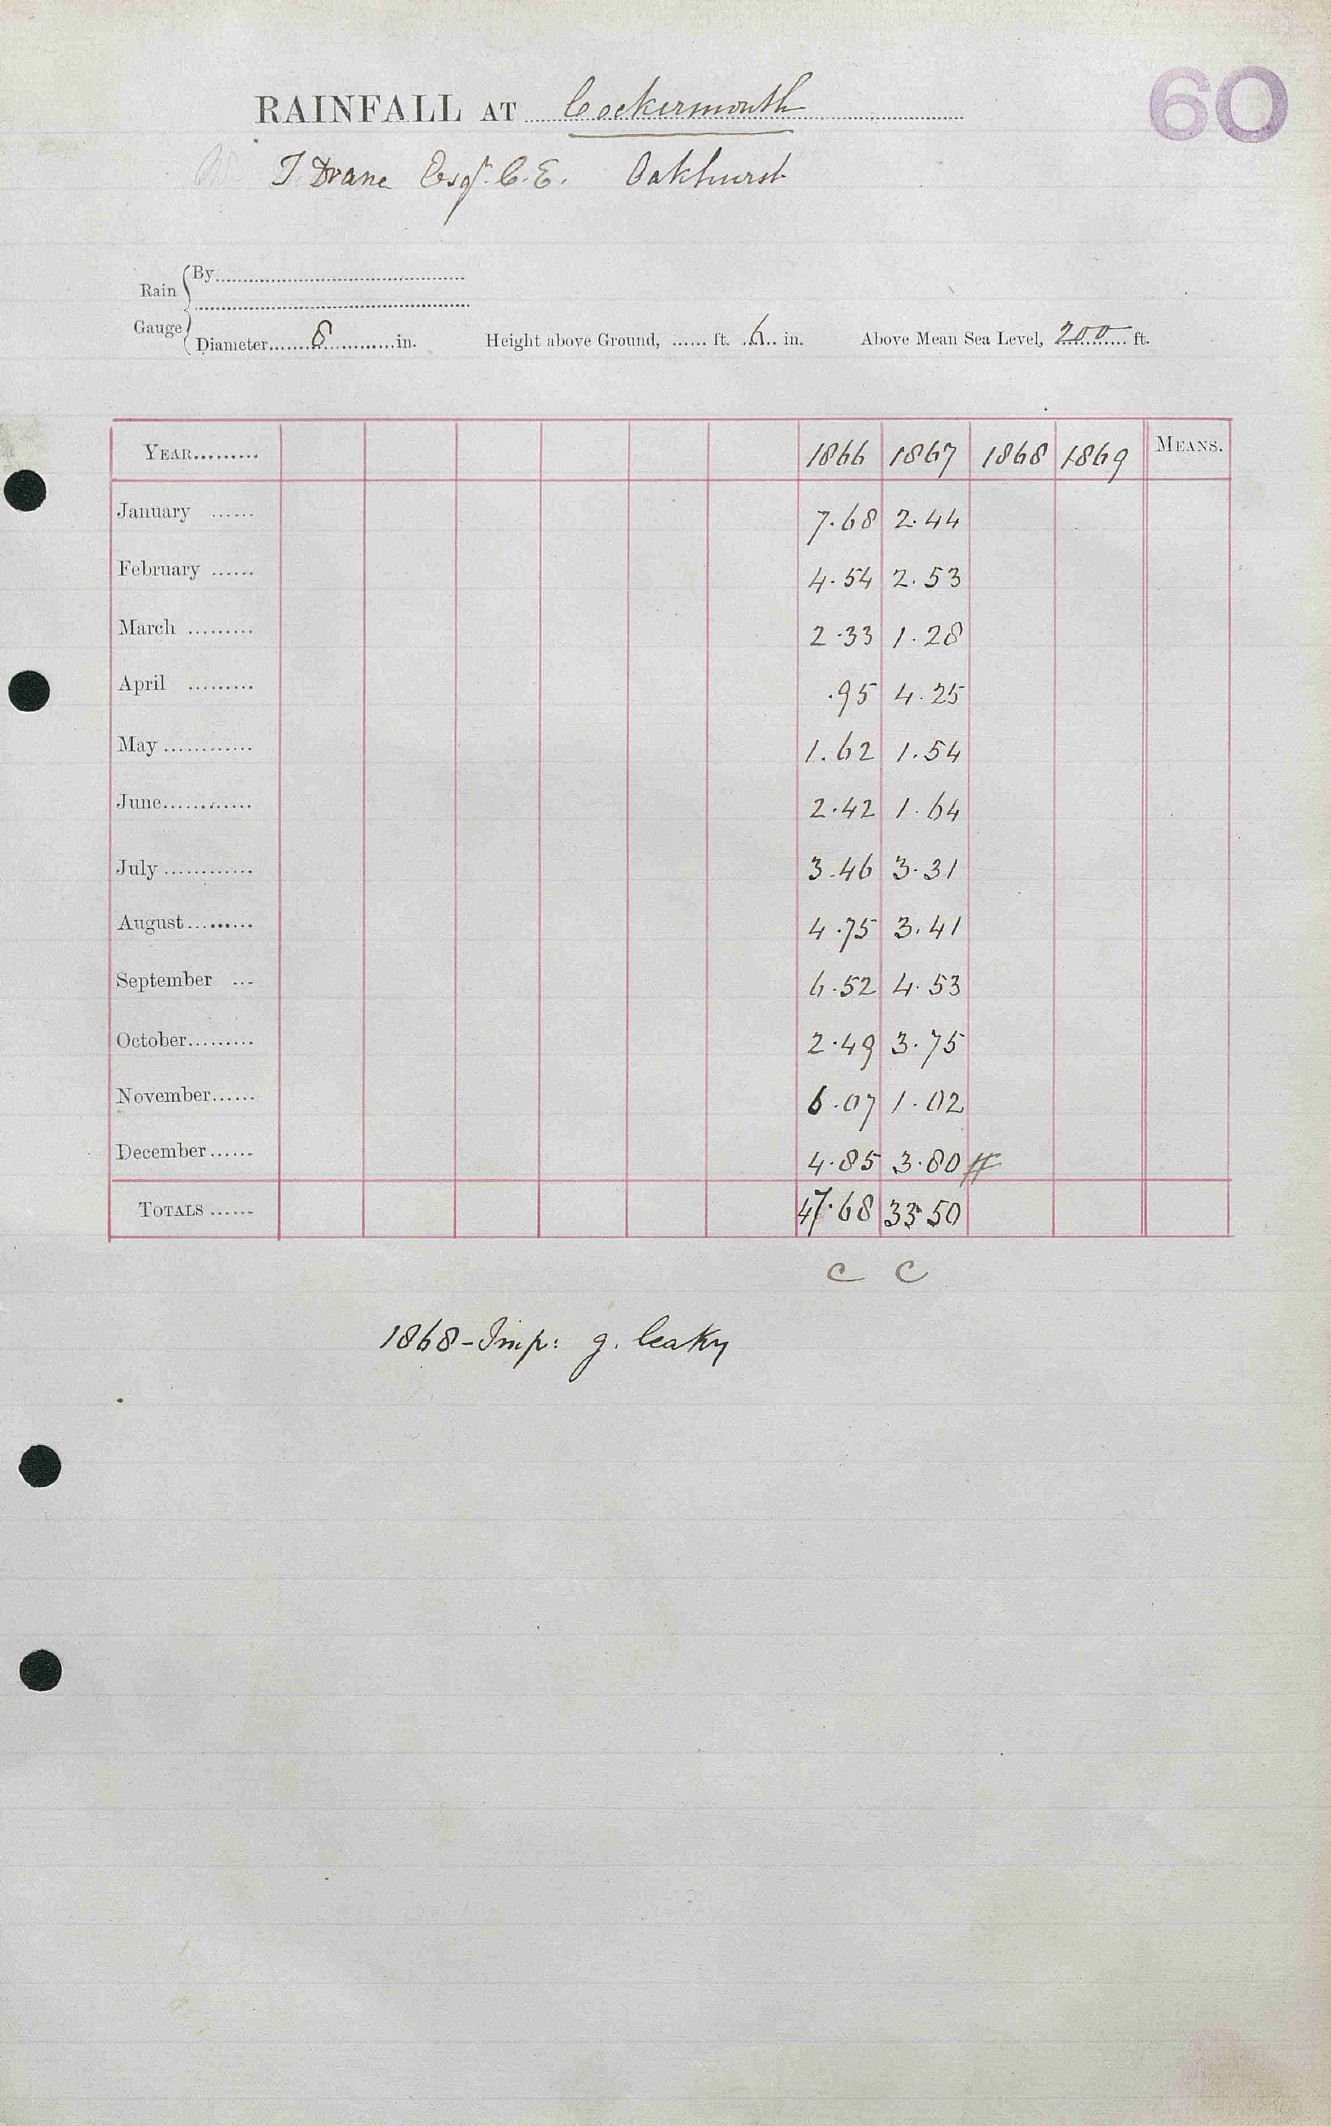 60
RAINFALL AT Cockermouth
T Drane Esqr. C.E. Oakhurst
Rain Gauge
By
Diameter 8 in. Height above Ground, ft. 6 in. Above Mean Sea Level, 200 ft.
YEAR 1866 1867 1868 1869 MEANS.
January 7.68 2.44
February 4.54 2.53
March 2.33 1.28
April .95 4.25
May 1.62 1.54
June 2.42 1.64
July 3.46 3.31
August 4.75 3.41
September 6.52 4.53
October 2.49 3.75
November 6.07 1.02
December 4.85 3.80 #
TOTALS 47.68 33.50
C C
1868-Imp: g. leaky